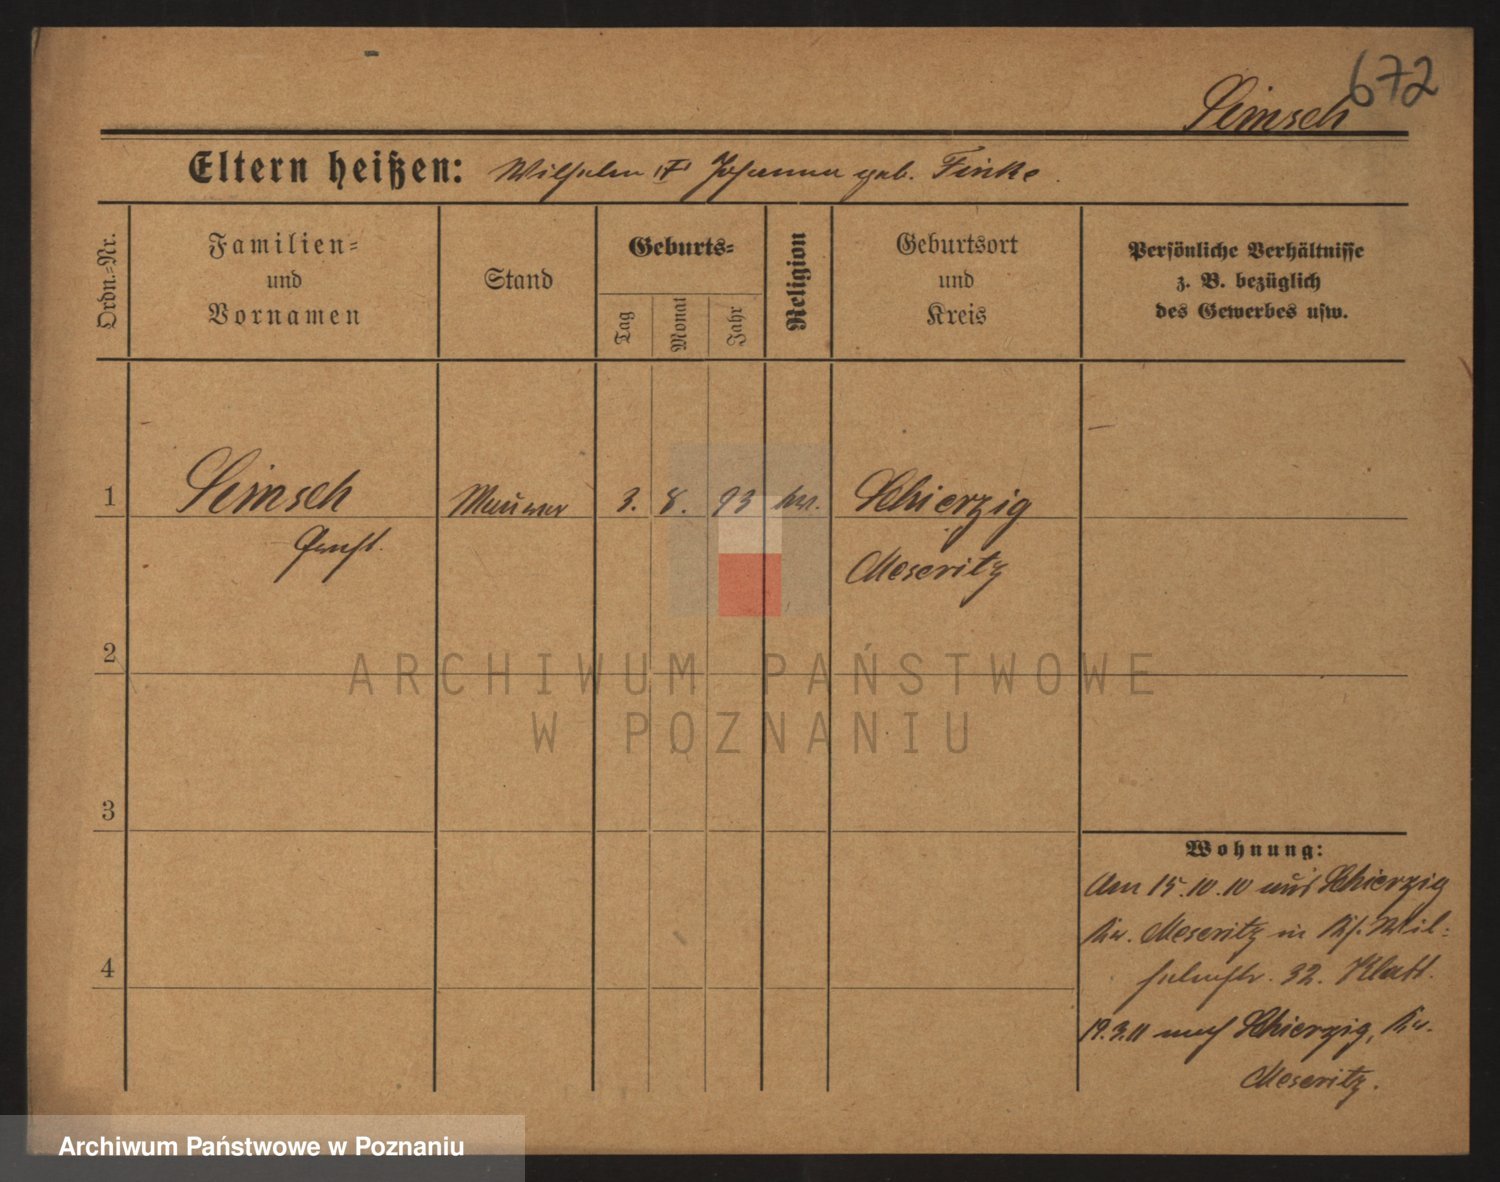 672
Simsch
Eltern heißen: Wilhelm Johanna geb. Finke.
Ordn.-Nr.
Familien-
und
Vornamen
Stand
Geburts-
Tag
Monat
Jahr
Religion
Geburtsort
und
Kreis
Persönliche Verhältnisse
z. B. bezüglich
des Gewerbes usw.
1 Simsch Maurer 3. 8. 93 Schierzig
Meseritz
2
3
4
ARCHIWUM PAŃSTWOWE
W POZNANIU
Wohnung:
Am 15.10.10 aus Schierzig
Kr. Meseritz in Wil-
helmstr. 32. Klatt.
19.3.11 nach Schierzig, Kr.
Meseritz.
Archiwum Państwowe w Poznaniu